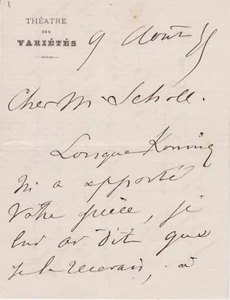 1
THÉATRE
DES
VARIÉTÉS
9 Août
Cher M Scholl.
Lorsque Koning
m'a apporté
votre pièce, je
lui ai dit que
je la recevrais, à